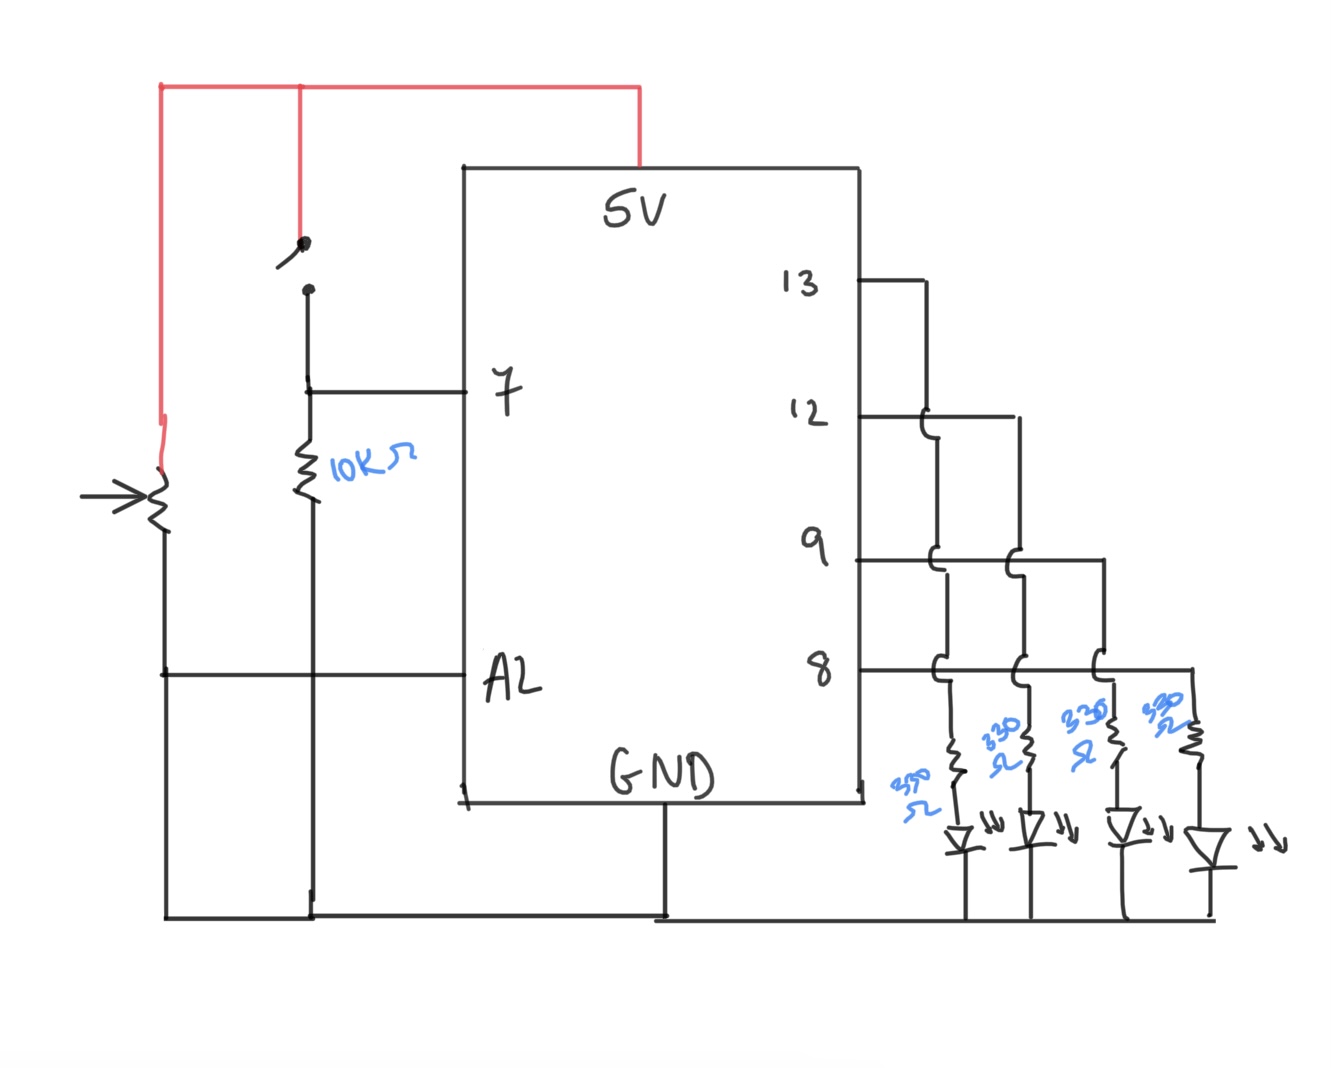 5V
13
7
12
10K Ω
9
A2
8
GND
330
Ω
330
Ω
330
Ω
330
Ω